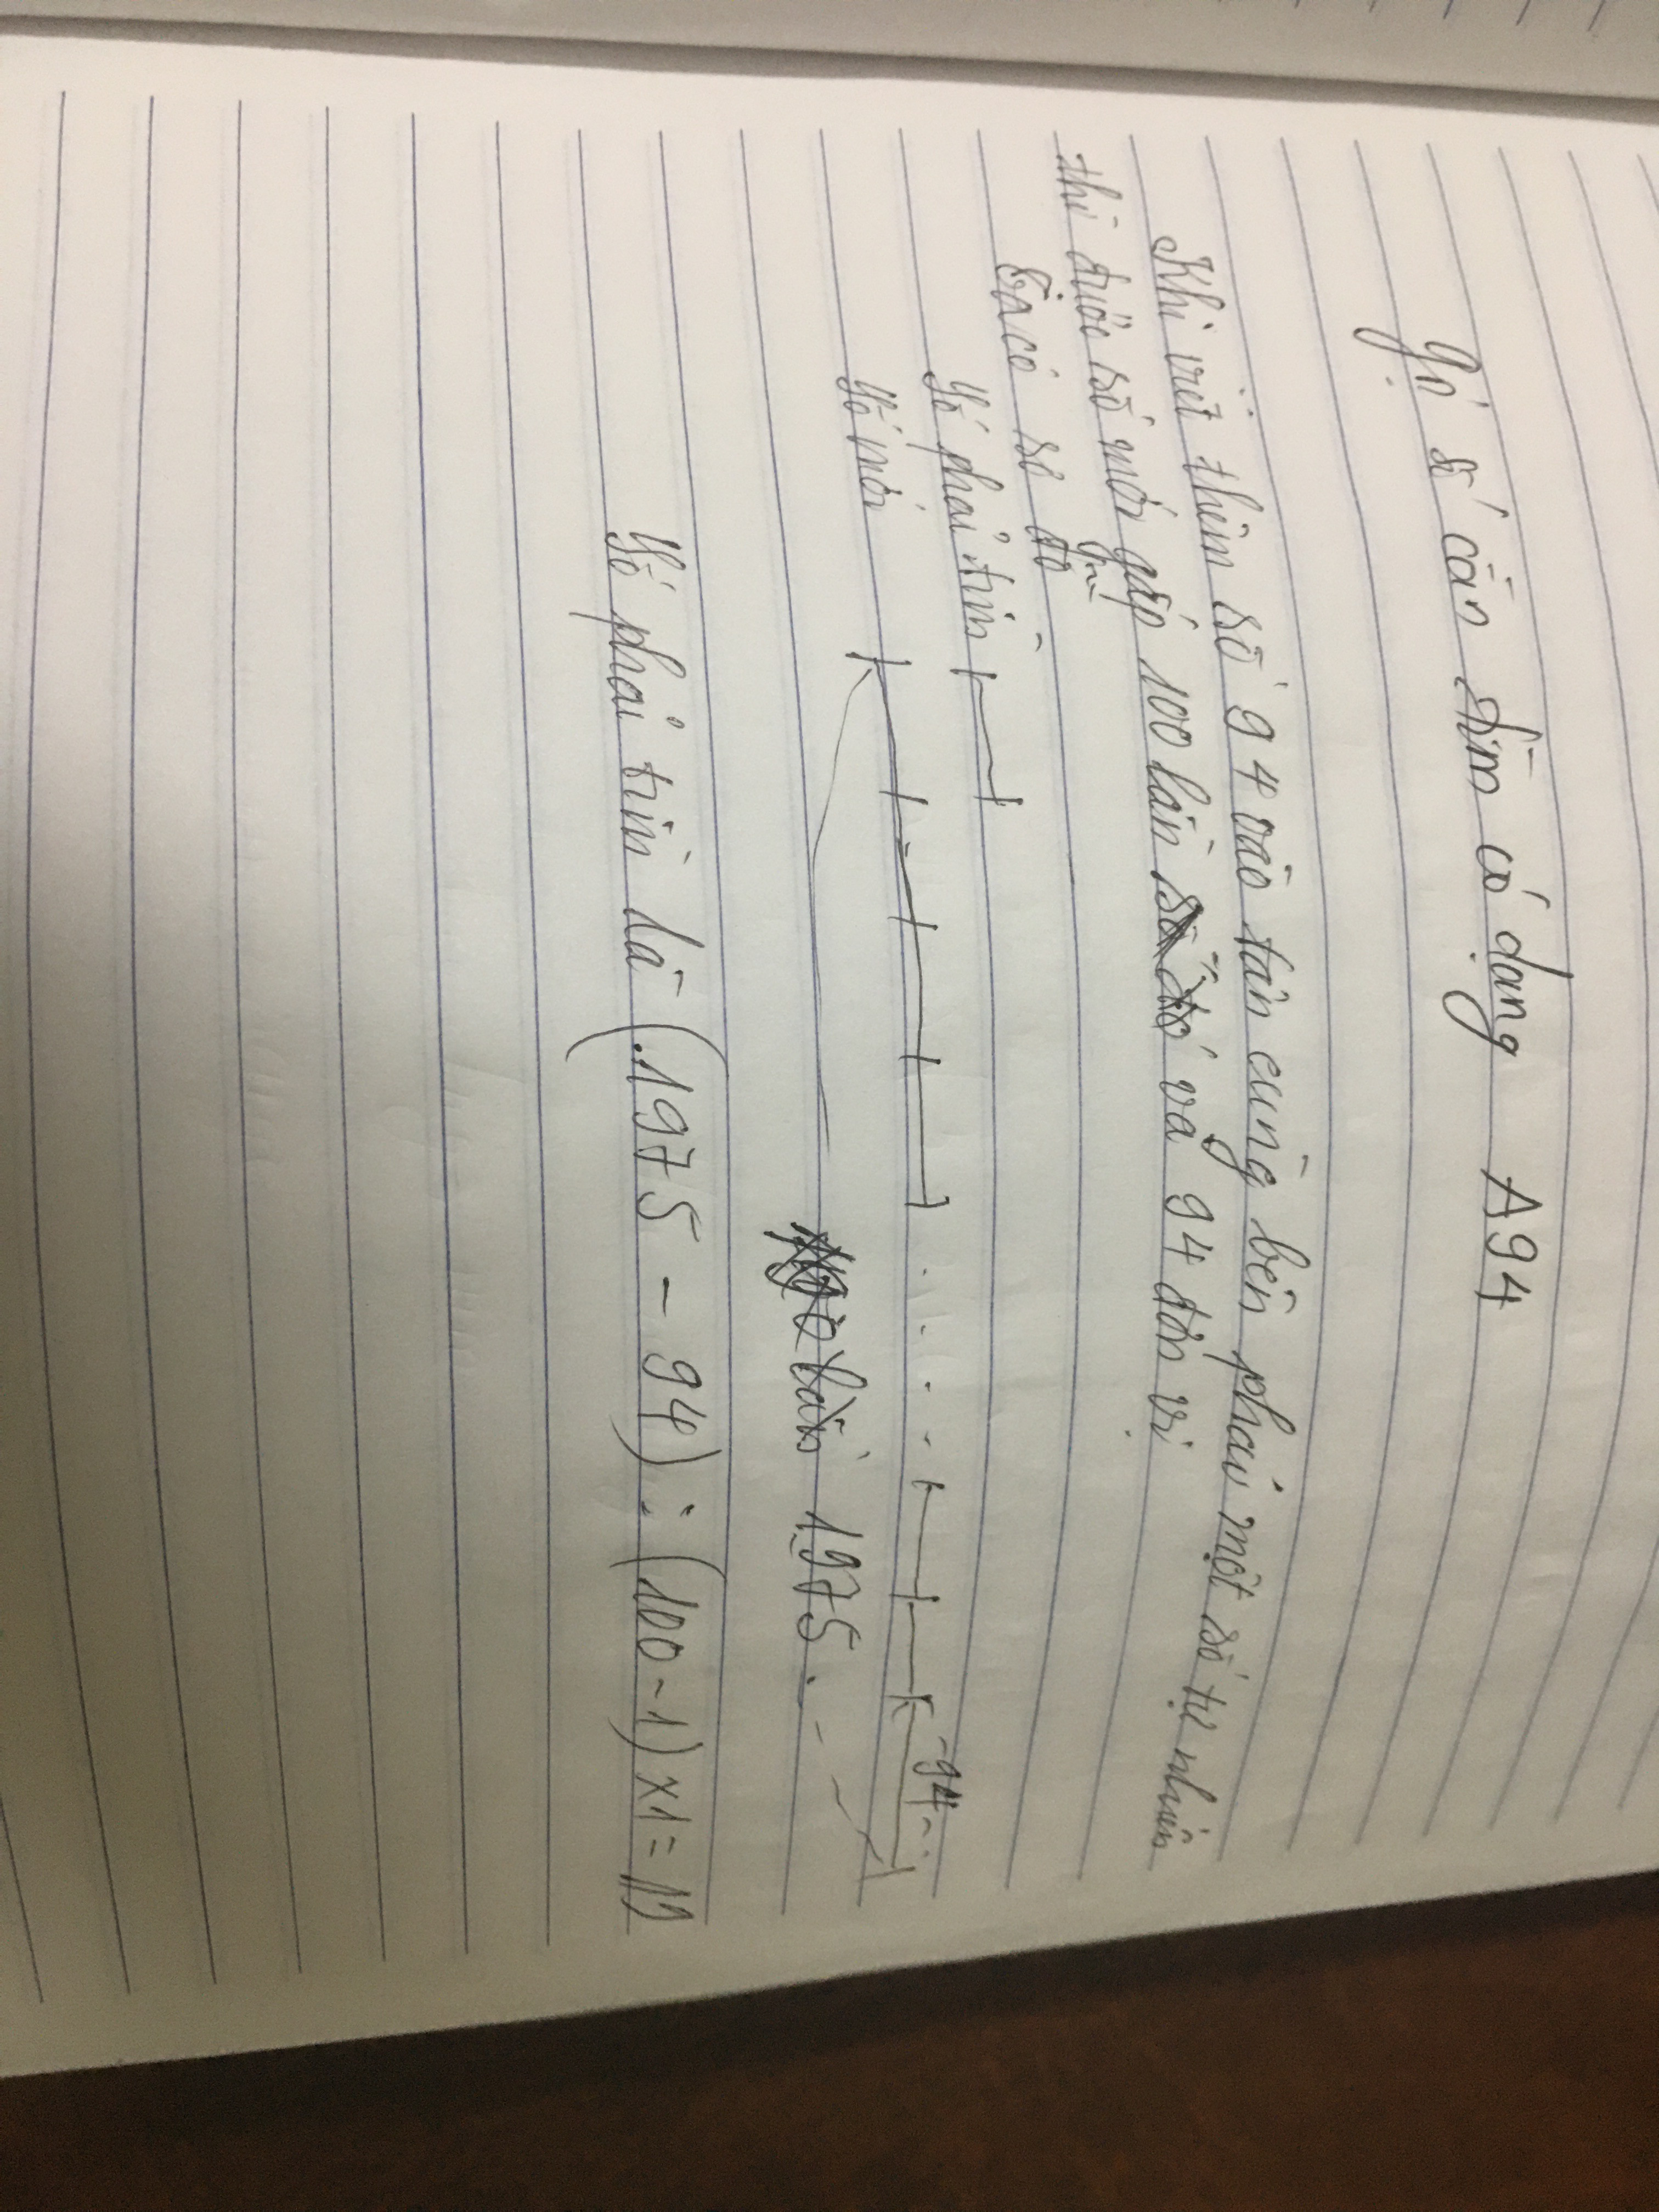 Số số cần tìm có dạng A94
Khi viết thêm số 94 vào tận cùng bên phải một số tự nhiên
thì được số mới gấp 100 lần số đó và 94 đơn vị
Ta có sơ đồ
Số phải tìm
94
Số mới
1975
Số phải tìm là (1975 - 94) : (100 - 1) x 1 = 19